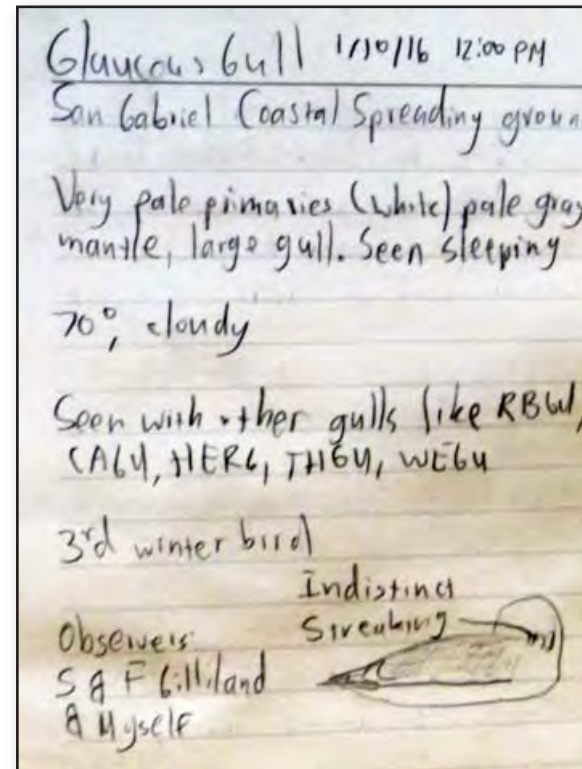 Glaucous Gull 1/10/16 12:00 PM
San Gabriel Coastal Spreading groun
Very pale primaries (white) pale gray
mantle, large gull. Seen sleeping
70°, cloudy
Seen with other gulls like RBGU,
CAGU, HERG, THGU, WEGU
3rd winter bird
Indistinct
Streaking
Observers:
S & F Gilliland
& Myself